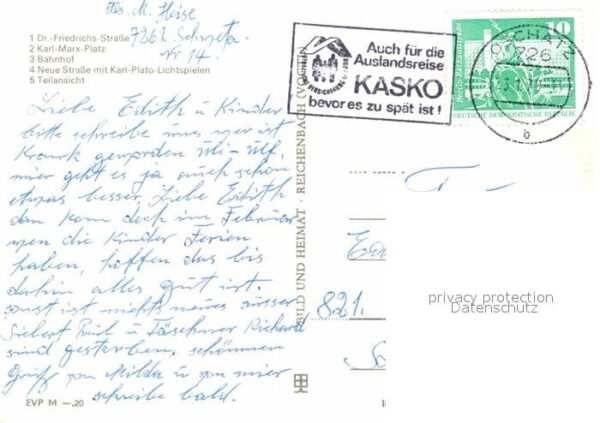 Abs. M. Heise
7261 Schweta
Nr 14.
1 Dr.-Friedrichs-Straße
2 Karl-Marx-Platz
3 Bahnhof
4 Neue Straße mit Karl-Plato-Lichtspielen
5 Teilansicht
Auch für die
Auslandsreise
KASKO
bevor es zu spät ist!
10
DEUTSCHE DEMOKRATISCHE REPUBLIK
OSCHATZ
726
b
Liebe Edith u Kinder
bitte schreibe mus wer ist
Krank geworden Uli - Ulf,
mier geht es ja auch schon
etwas besser, Liebe Edith
dan kom doch im Februar
wen die Kinder Ferien
haben, hoffen das bis
dahin alles gut ist.
sonst ist nichts neues ausser
Siebert Paul u Täschner Richard
sind gestorben, schönnen
Gruß von Milda u von mier
schreibe bald.
BILD UND HEIMAT · REICHENBACH (VOGTL)
821.
privacy protection
Datenschutz
EVP M —.20